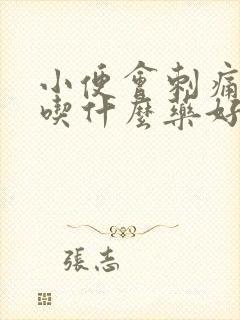 小便會刺痛
喫什麼藥好
張志